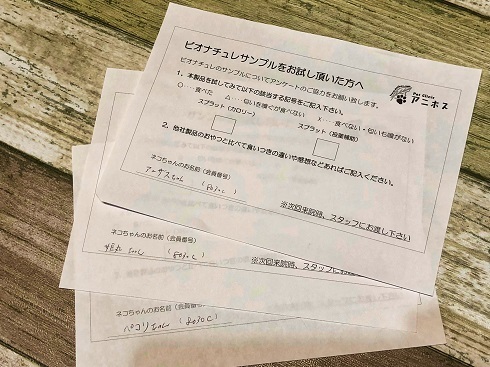 ビオナチュレサンプルをお試し頂いた方へ
Pet Clinic
アニホス
ビオナチュレのサンプルについてアンケートのご協力をお願い致します。
1、本製品を試してみて以下の該当する記号をご記入下さい。
○…食べた △…匂いを嗅ぐが食べない ×…食べない・匂いも嗅がない
スプラット（カロリー） スプラット（投薬補助）
2、他社製品のおやつと比べて食いつきの違いや感想などあればご記入ください。
ネコちゃんのお名前（会員番号）
アーサスちゃん （8070C）
※次回来院時、スタッフにお渡し下さい
ネコちゃんのお名前（会員番号）
ちゃん （8070C）
※次回来院時、スタッフにお
ネコちゃんのお名前（会員番号）
ペコリちゃん （8070C）